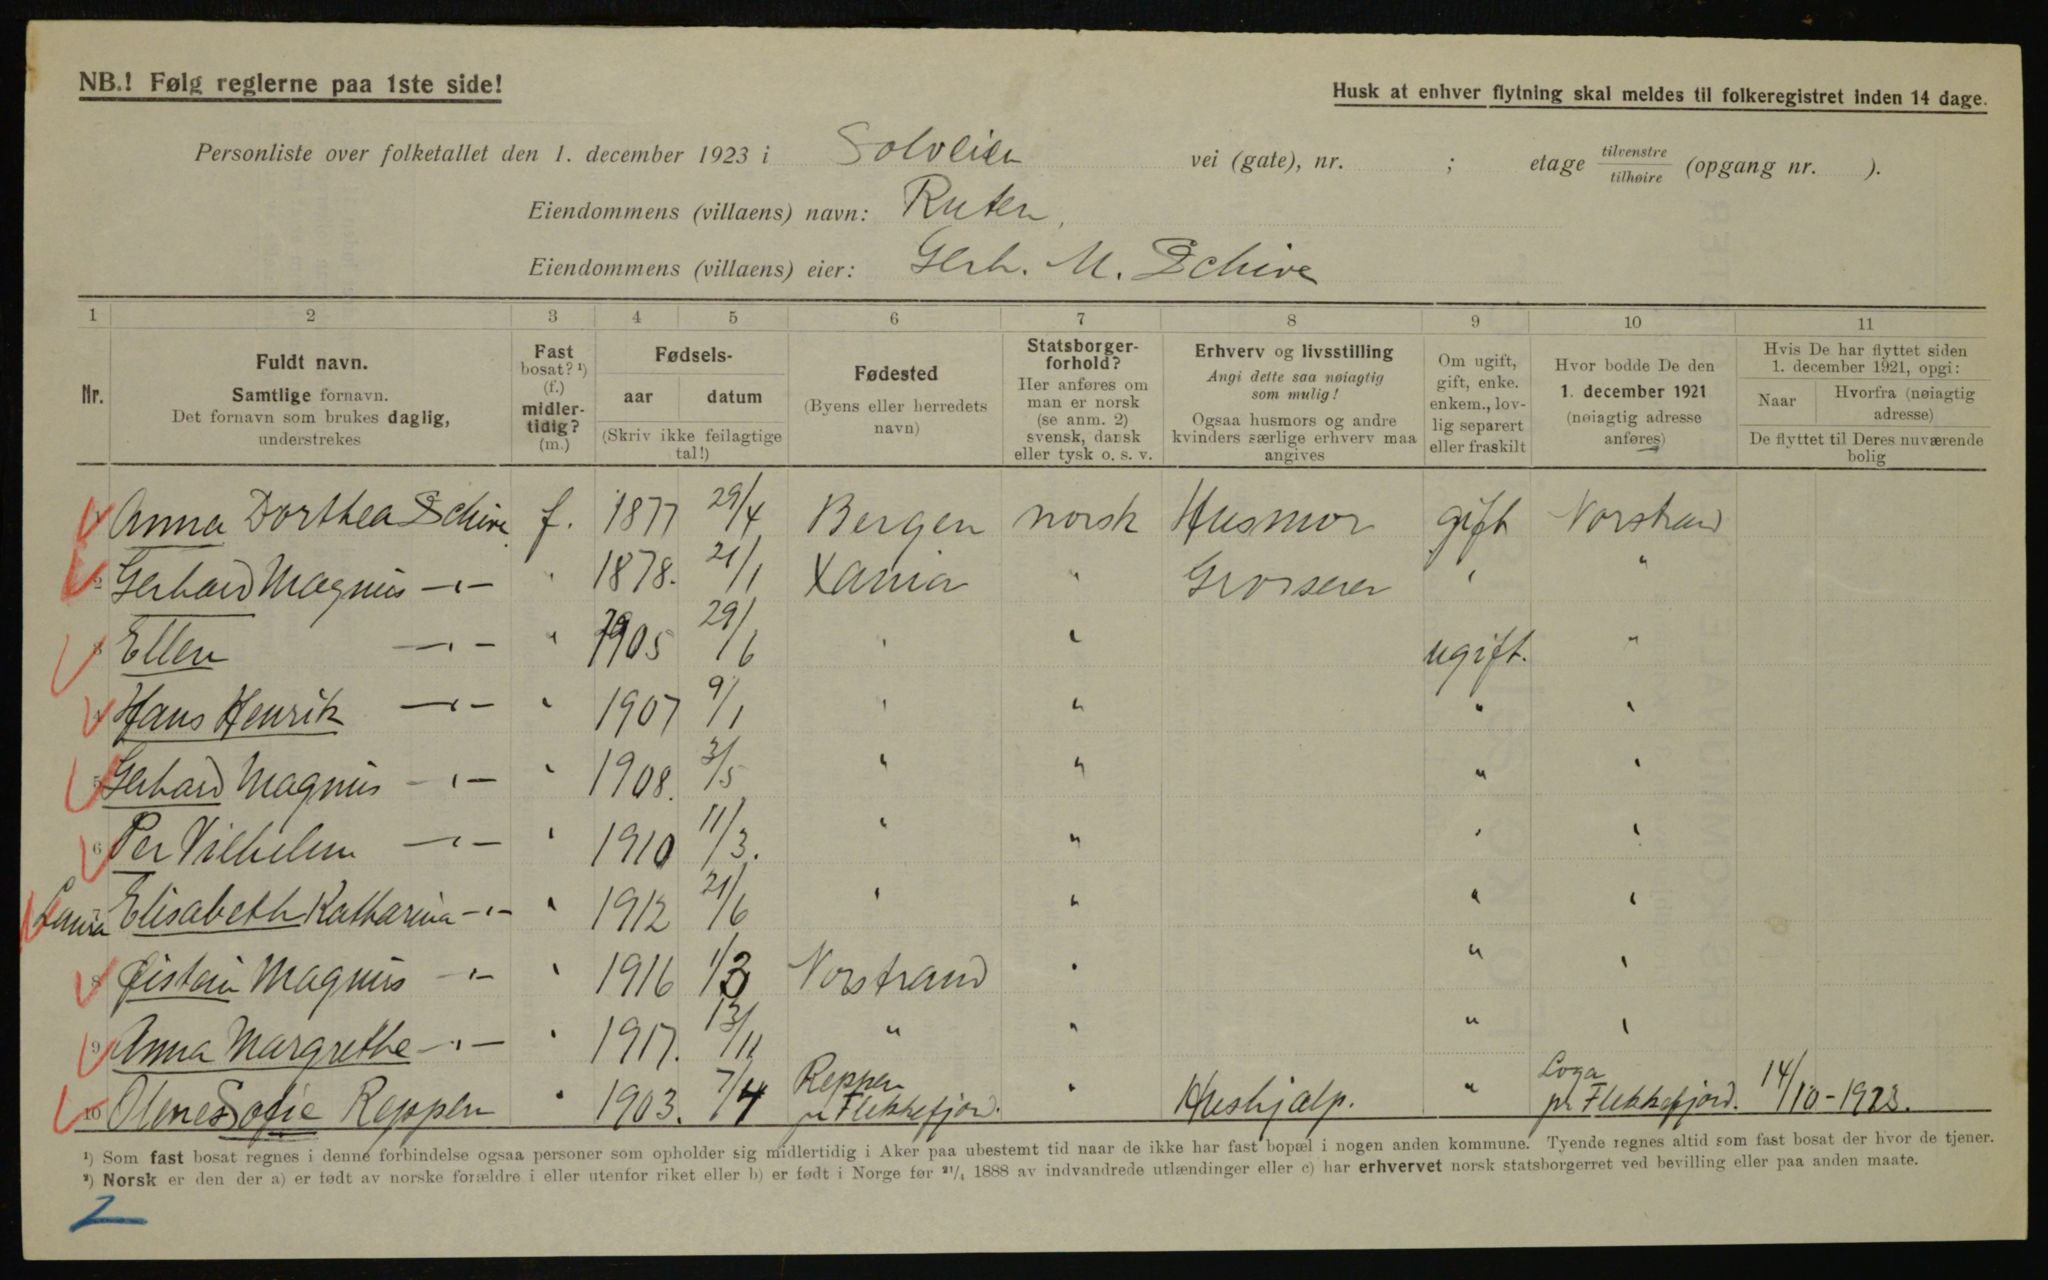 NB.! Følg reglerne paa 1ste side!
Husk at enhver flytning skal meldes til folkeregistret inden 14 dage.
Personliste over folketallet den 1. december 1923 i Solveien vei (gate), nr. ; etage tilvenstre / tilhøire (opgang nr. ).
Eiendommens (villaens) navn: Ruten
Eiendommens (villaens) eier: Gerh. M. Schive
1 2 3 4 5 6 7 8 9 10 11
Nr.
Fuldt navn.
Samtlige fornavn.
Det fornavn som brukes daglig,
understrekes
Fast
bosat? ¹)
(f.)
midler-
tidig?
(m.)
Fødsels-
aar datum
(Skriv ikke feilagtige
tal!)
Fødested
(Byens eller herredets
navn)
Statsborger-
forhold?
Her anføres om
man er norsk
(se anm. 2)
svensk, dansk
eller tysk o. s. v.
Erhverv og livsstilling
Angi dette saa nøiagtig
som mulig!
Ogsaa husmors og andre
kvinders særlige erhverv maa
angives
Om ugift,
gift, enke.
enkem., lov-
lig separert
eller fraskilt
Hvor bodde De den
1. december 1921
(nøiagtig adresse
anføres)
Hvis De har flyttet siden
1. december 1921, opgi:
Naar
Hvorfra (nøiagtig
adresse)
De flyttet til Deres nuværende
bolig
1 Anna Dorthea Schive f. 1877 29/4 Bergen norsk Husmor gift Norstrand
2 Gerhard Magnus -"- " 1878. 21/1 Xania " Grosserer " "
3 Ellen -"- " 1905 29/6 " " ugift. "
4 Hans Henrik -"- " 1907 9/1 " " " "
5 Gerhard Magnus -"- " 1908. 3/5 " " " "
6 Per Vilhelm -"- " 1910 11/3. " " " "
7 Laura Elisabeth Katharina -"- " 1912 21/6 " " " "
8 Øistein Magnus -"- " 1916 1/3 Norstrand " " "
9 Anna Margrethe -"- " 1917. 13/11 " " " "
10 Olene Sofie Reppen " 1903. 7/4 Reppen pr Flekkefjord. " Hushjælp. " Loga pr Flekkefjord. 14/10-1923.
¹) Som fast bosat regnes i denne forbindelse ogsaa personer som opholder sig midlertidig i Aker paa ubestemt tid naar de ikke har fast bopæl i nogen anden kommune. Tyende regnes altid som fast bosat der hvor de tjener.
²) Norsk er den der a) er født av norske forældre i eller utenfor riket eller b) er født i Norge før ²¹/₄ 1888 av indvandrede utlændinger eller c) har erhvervet norsk statsborgerret ved bevilling eller paa anden maate.
2